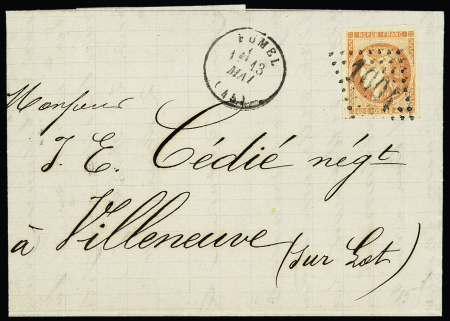 FUMEL
13
MAI
(45)
REPUB. FRANC.
Monsieur
J. E. Cédié négt
à Villeneuve (sur Lot)